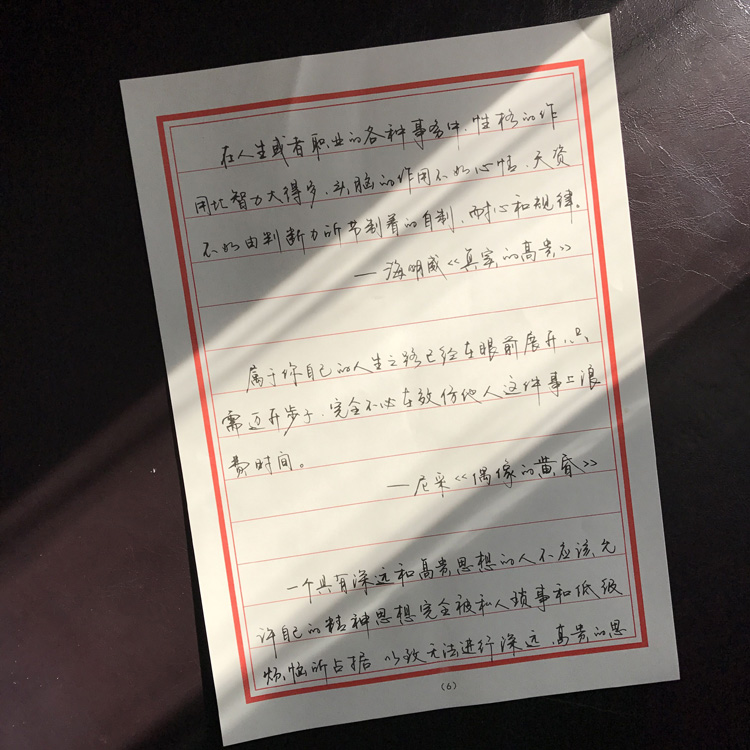 在人生或者职业的各种事务中,性格的作
用比智力大得多,头脑的作用不如心情,天资
不如由判断力所节制着的自制,耐心和规律。
——海明威《真实的高贵》
属于你自己的人生之路已经在眼前展开,只
需迈开步子,完全不必在效仿他人这件事上浪
费时间。
——尼采《偶像的黄昏》
一个具有深远和高贵思想的人不应该允
许自己的精神思想完全被私人琐事和低级
烦恼所占据,以致无法进行深远、高贵的思
(6)